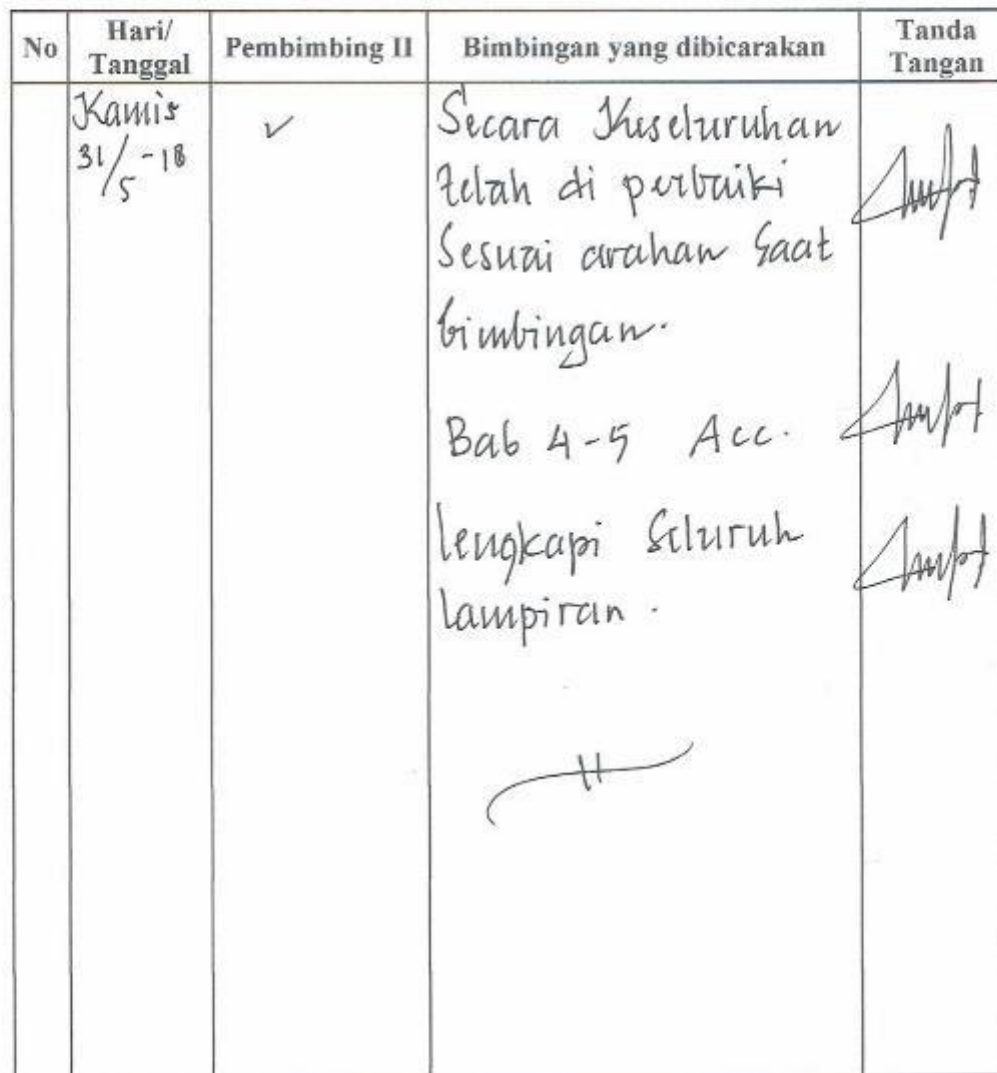 No Hari/ Tanggal Pembimbing II Bimbingan yang dibicarakan Tanda Tangan
Kamis
31/5-18
✓
Secara Keseluruhan
telah di perbaiki
Sesuai arahan Saat
bimbingan.
Bab 4-5 Acc.
lengkapi Seluruh
lampiran.